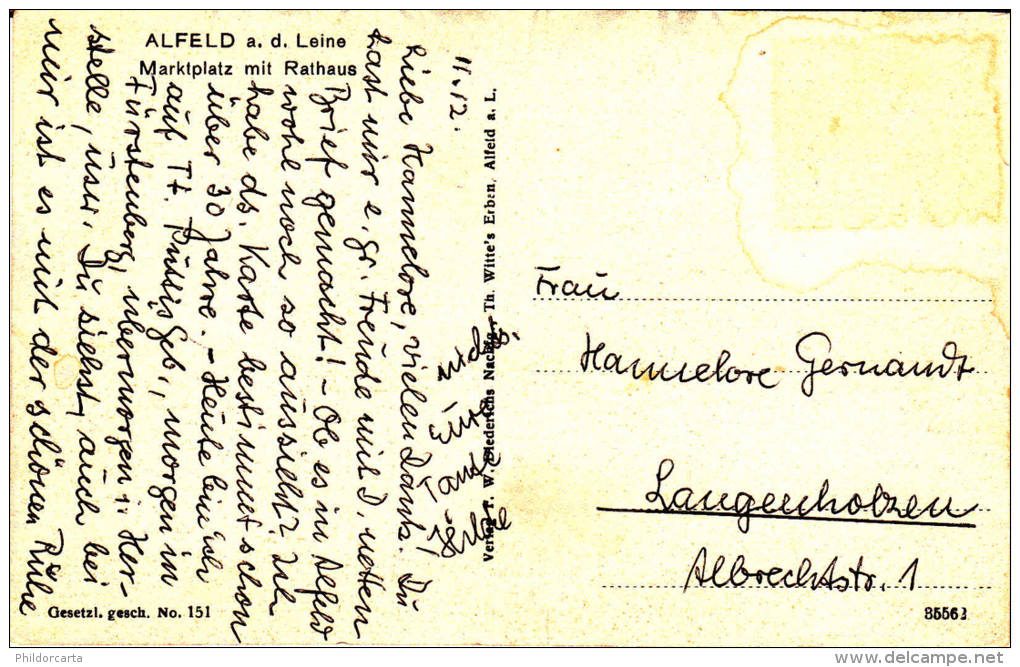 ALFELD a. d. Leine
Marktplatz mit Rathaus
11.12.
Liebe Hannelore, vielen Dank! Du
hast mir e. gr. Freude mit D. netten
Brief gemacht! - Ob es in Alfeld
wohl noch so aussieht? Ich
habe ds. Karte bestimmt schon
über 30 Jahre. - Heute bin ich
auf Tt. gb, morgen in
Fürstenberg, übermorgen i. Her-
stelle, usw. Du siehst, auch bei
mir ist es mit der schönen Ruhe
nichts.
Eure
Tante
Verlag F. W. Diederichs Nachfg. Th. Witte's Erben, Alfeld a. L.
Frau
Hannelore Gernandt
Langenholzen
Albrechtstr. 1
Gesetzl. gesch. No. 151
35562
Phildorcarta
www.delcampe.net